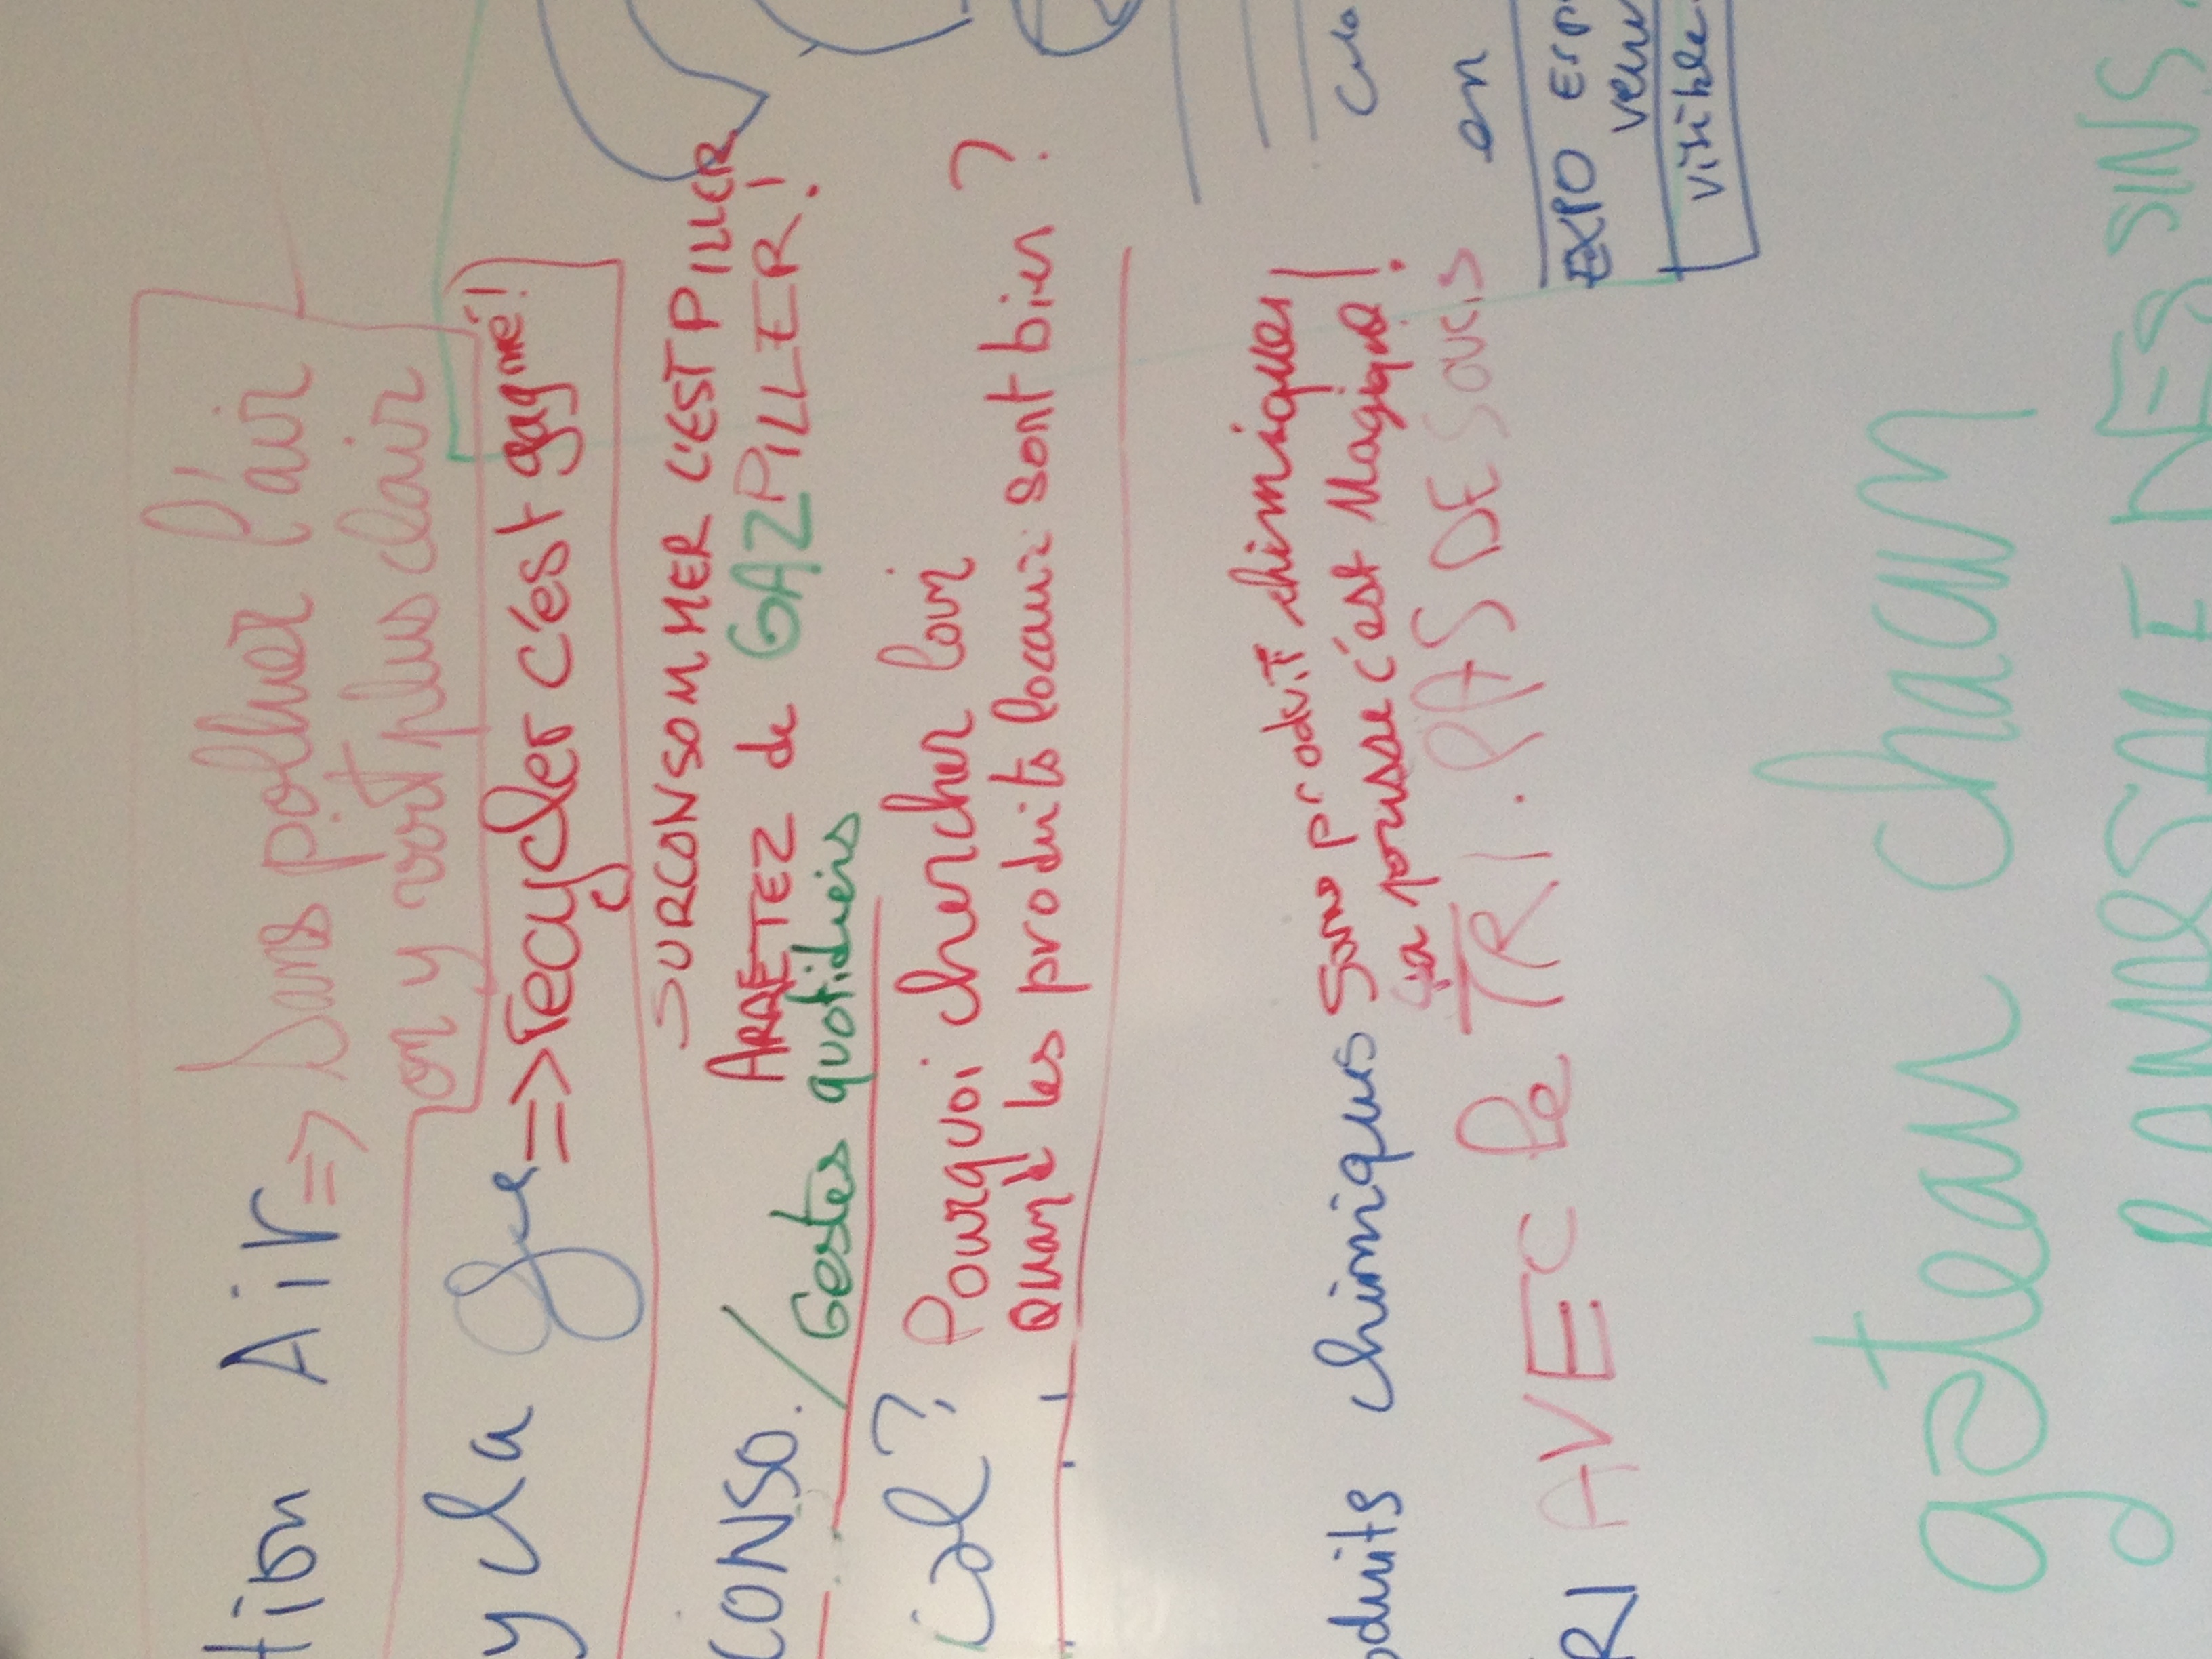 tion Air => Sans polluer l'air
on y voit plus clair
ycla ge => recycler c'est gagné!
SURCONSOMMER C'EST PILLER
CONSO. / ARRETEZ de GAZPILLER!!
Gestes quotidiens
Pourquoi chercher loin
Quand les produits locaux sont bien ?
Sans produit chimiques!
oduits chimiques ça pousse c'est Magique!
RI AVEC le TRI. PAS DE SOUCIS
en
EXPO
visible
gateau chacun